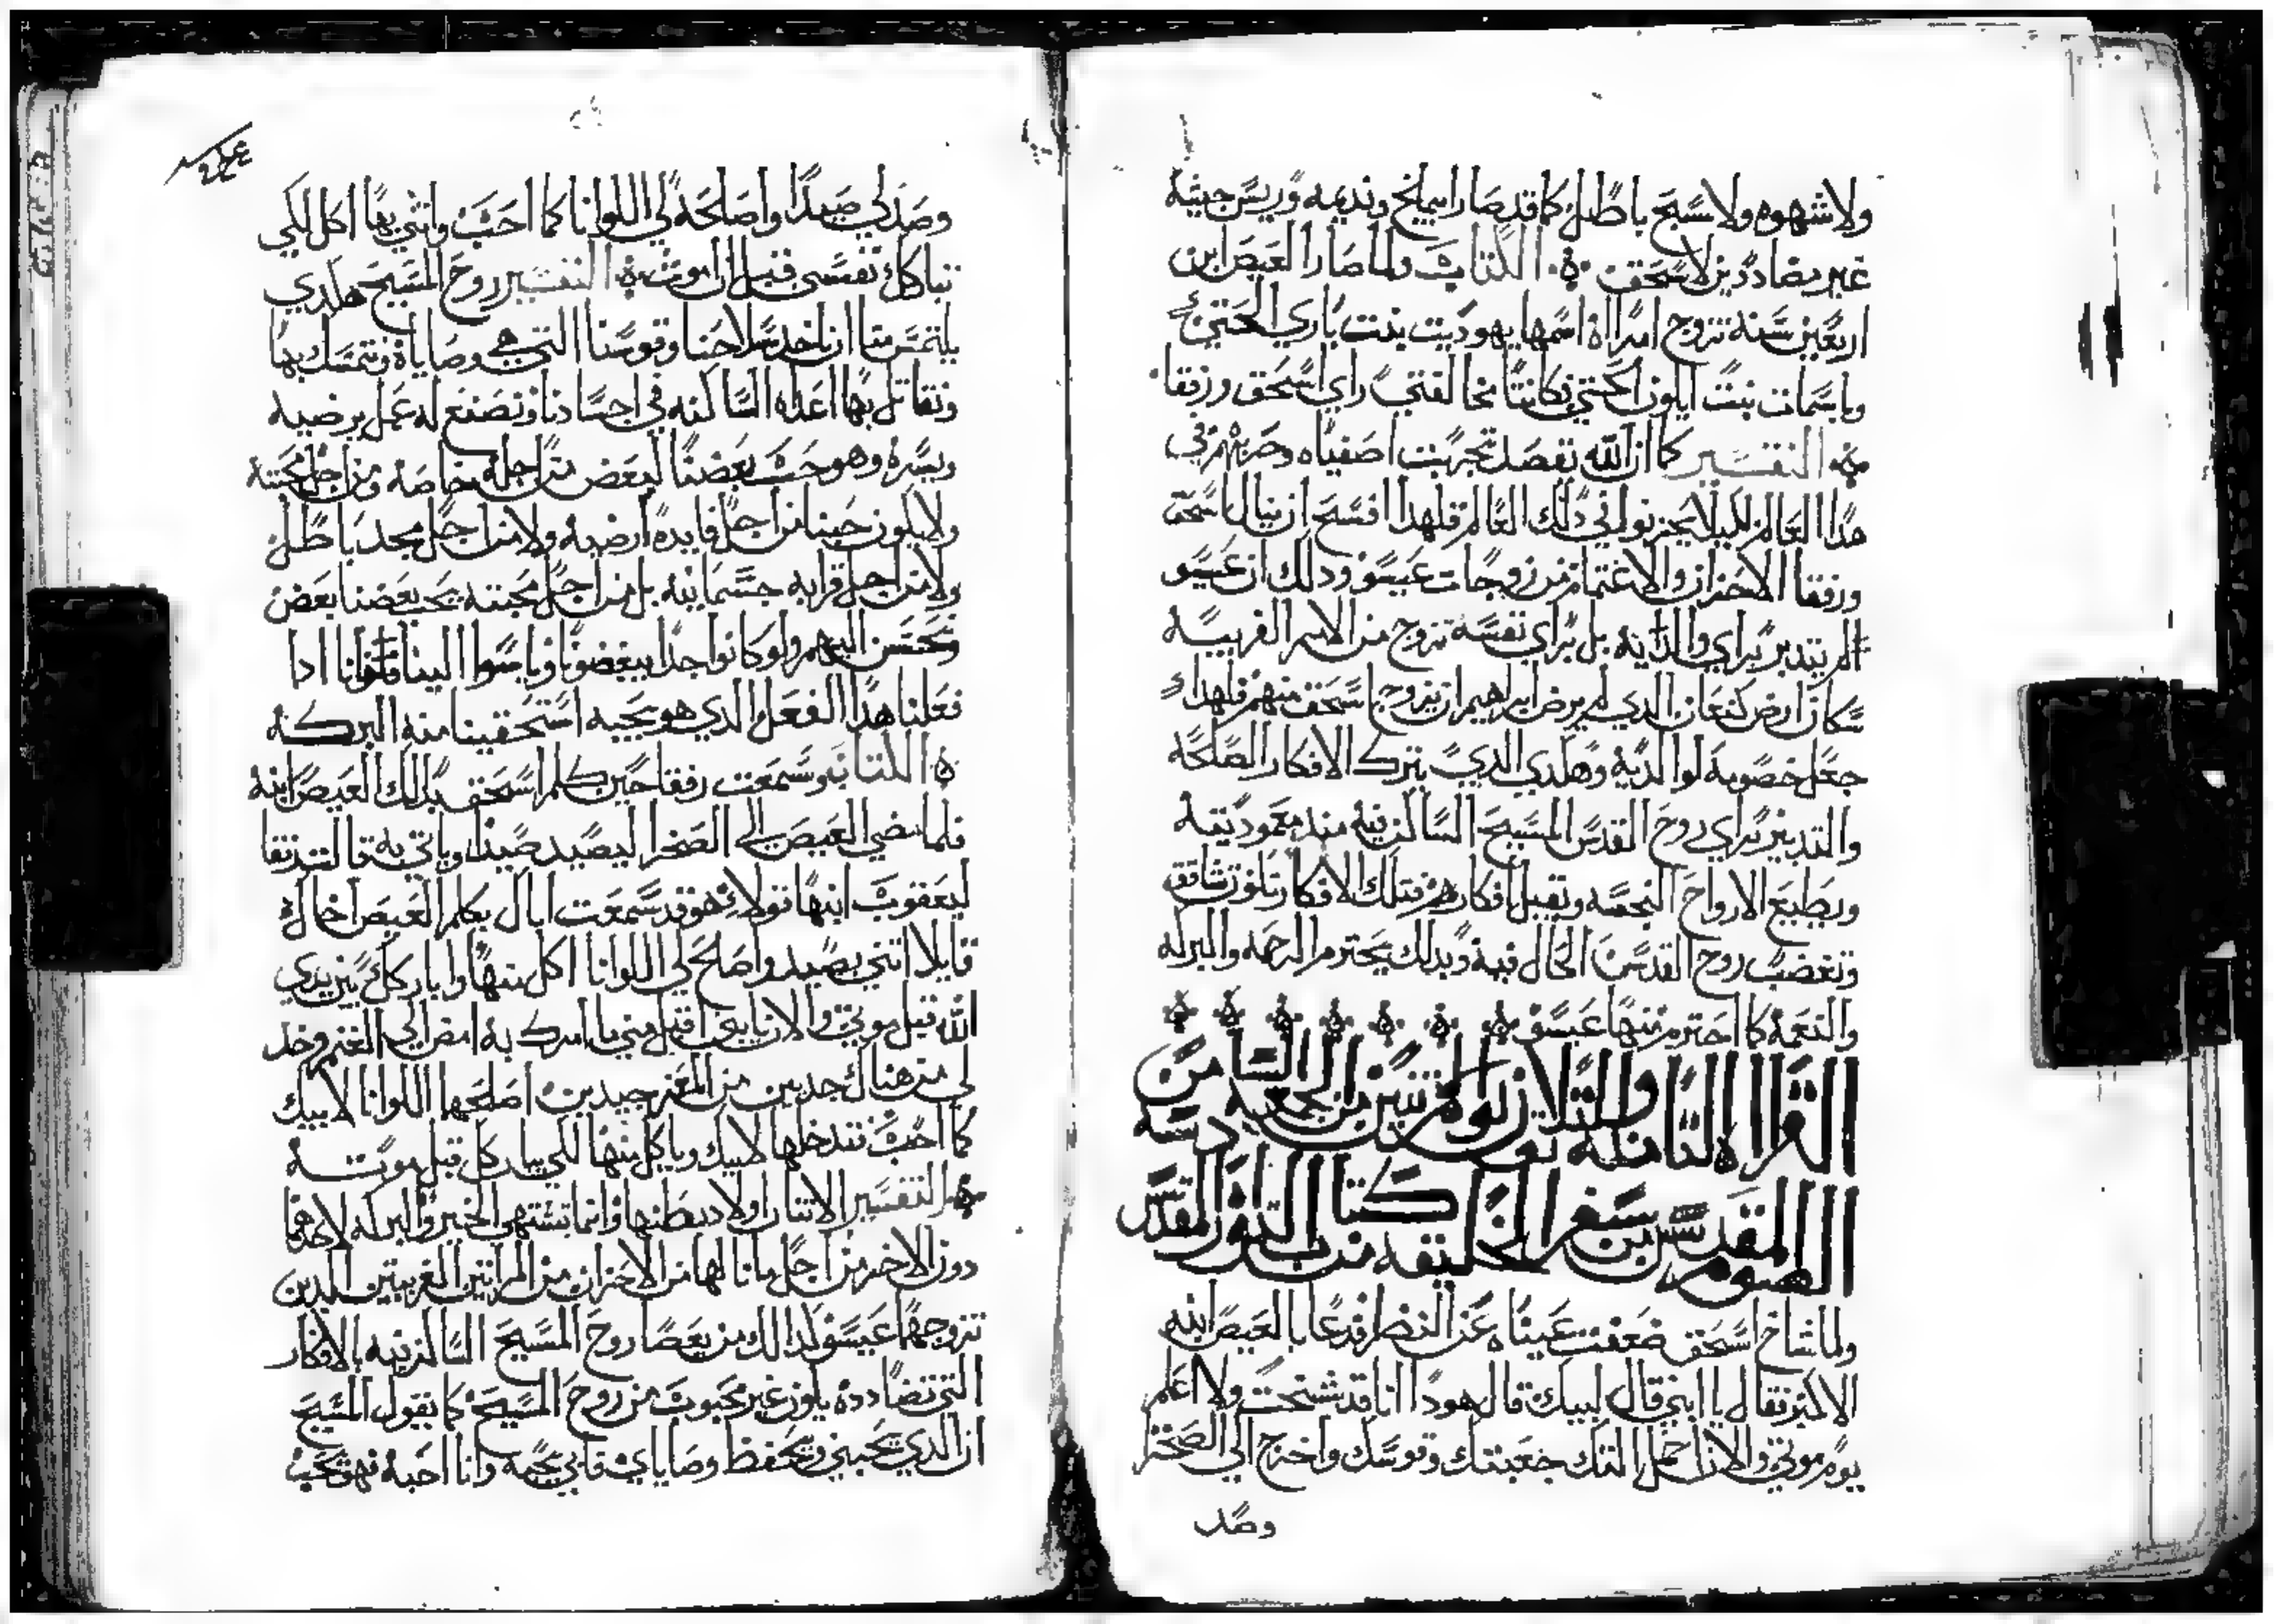 ولا شهوه ولا سبح باطل كما قد صار ابيمالخ ونديمه وريس جيشه
غير مضاددين لاسحق ۞ الكتاب ولما صار العيص ابن
اربعين سنة تزوج امراة اسمها يهوديت بنت باري الحتي
وباسمات بنت ايلون الحتي فكانتا مخالفتي راي اسحق ورفقا
۞ التفسير كما ان الله تفضل بتجربت اصفياه وحزنهم في
هدا العالم لكيلا يحزنوا في دلك العالم فلهدا افسح ان ينال اسحق
ورفقا الاحزان والاغتمام من زوجات عيسو ودلك ان عيسو
لم يتدبر براي والديه بل براي نفسه تزوج من الامم الغريبه
سكان ارض كنعان الدي لم يرض ابراهيم ان يزوج اسحق منهم فلهدا
جعل خصومه لوالديه وهكدي الدي يترك الافكار الصالحه
والتدبير براي روح القدس المسيح الساكن فيه مند معموديته
ويطيع الارواح النجسه ويقبل افكارهم فتلك الافكار تكون تشاقق
وتغضب روح القدس الحال فيه وبدلك يحترم الرحمه والبركه
والنعمه كما احترم منها عيسو ۞ ۞ ۞ ۞ ۞ ۞ ۞
القراه الثامنه والتلاتون ليوم تنين من الجمعه السادسه من
الصوم المقدس من سفر الخليقه من كتاب التوراه المقدس
ولما شاخ اسحق ضعفت عيناه عن النظر فدعا بالعيص ابنه
الاكبر فقال يا ابني قال لبيك قال هودا انا قد شخت ولا اعلم
يوم موتي والان احمل التك جعبتك وقوسك واخرج الي الصحرا
وصد
وصد لي صيدا واصلحه لي الوانا كما احب واتني بها اكل لكي
تباركك نفسي قبل ان اموت ۞ التفسير روح المسيح هكدي
يلتمس منا ان ناخد سلاحنا وقوسنا التي هي وصاياه ونتمسك بها
ونقاتل بها اعداه الساكنه في اجسادنا ونصنع له عمل يرضيه
ويسره وهو حب بعضنا لبعض من اجله خاصه ومن اجل محبته
ولا يكون حبنا من اجل فايده ارضيه ولا من اجل مجد باطل
ولا من اجل قرابه جسمانيه بل من اجل محبته يحب بعضنا بعض
ونحسن اليهم ولو كانوا جدا يبغضونا وياسوا الينا فاننا ادا
فعلنا هدا الفعل الدي هو يحبه استحقينا منه البركه
۞ الكتاب وسمعت رفقا حين كلم اسحق بدلك العيص ابنه
فلما مضي العيص الي الصحرا ليصيد صيدا وياتي به قالت رفقا
ليعقوب ابنها قولا هو قد سمعت اباك يكلم العيص اخاك
قايلا اتني بصيد واصلح لي الوانا اكل منها واباركك بين يدي
الله قبل موتي والان يابني اقبل مني ما امرك به امض الي الغنم وخد
لي من هناك جديين من المعز جيدين اصلحها الوانا لابيك
كما احب فتدخلها لابيك وياكل منها لكي يباركك قبل موته
۞ التفسير الاتنان اولاد بطنها وانما تشتهي الخير والبركه لاحدهما
دون الاخر من اجل ما نالها من الاحزان من المراتين الغريبتين الدين
تزوجهما عيسو كدالك من يعصا روح المسيح الساكن فيه بالافكار
التي تضادده يكون غير محبوب من روح المسيح كما يقول المسيح
ان الدي يحبني ويحفظ وصاياي فابي يحبه وانا احبه فهو يحب